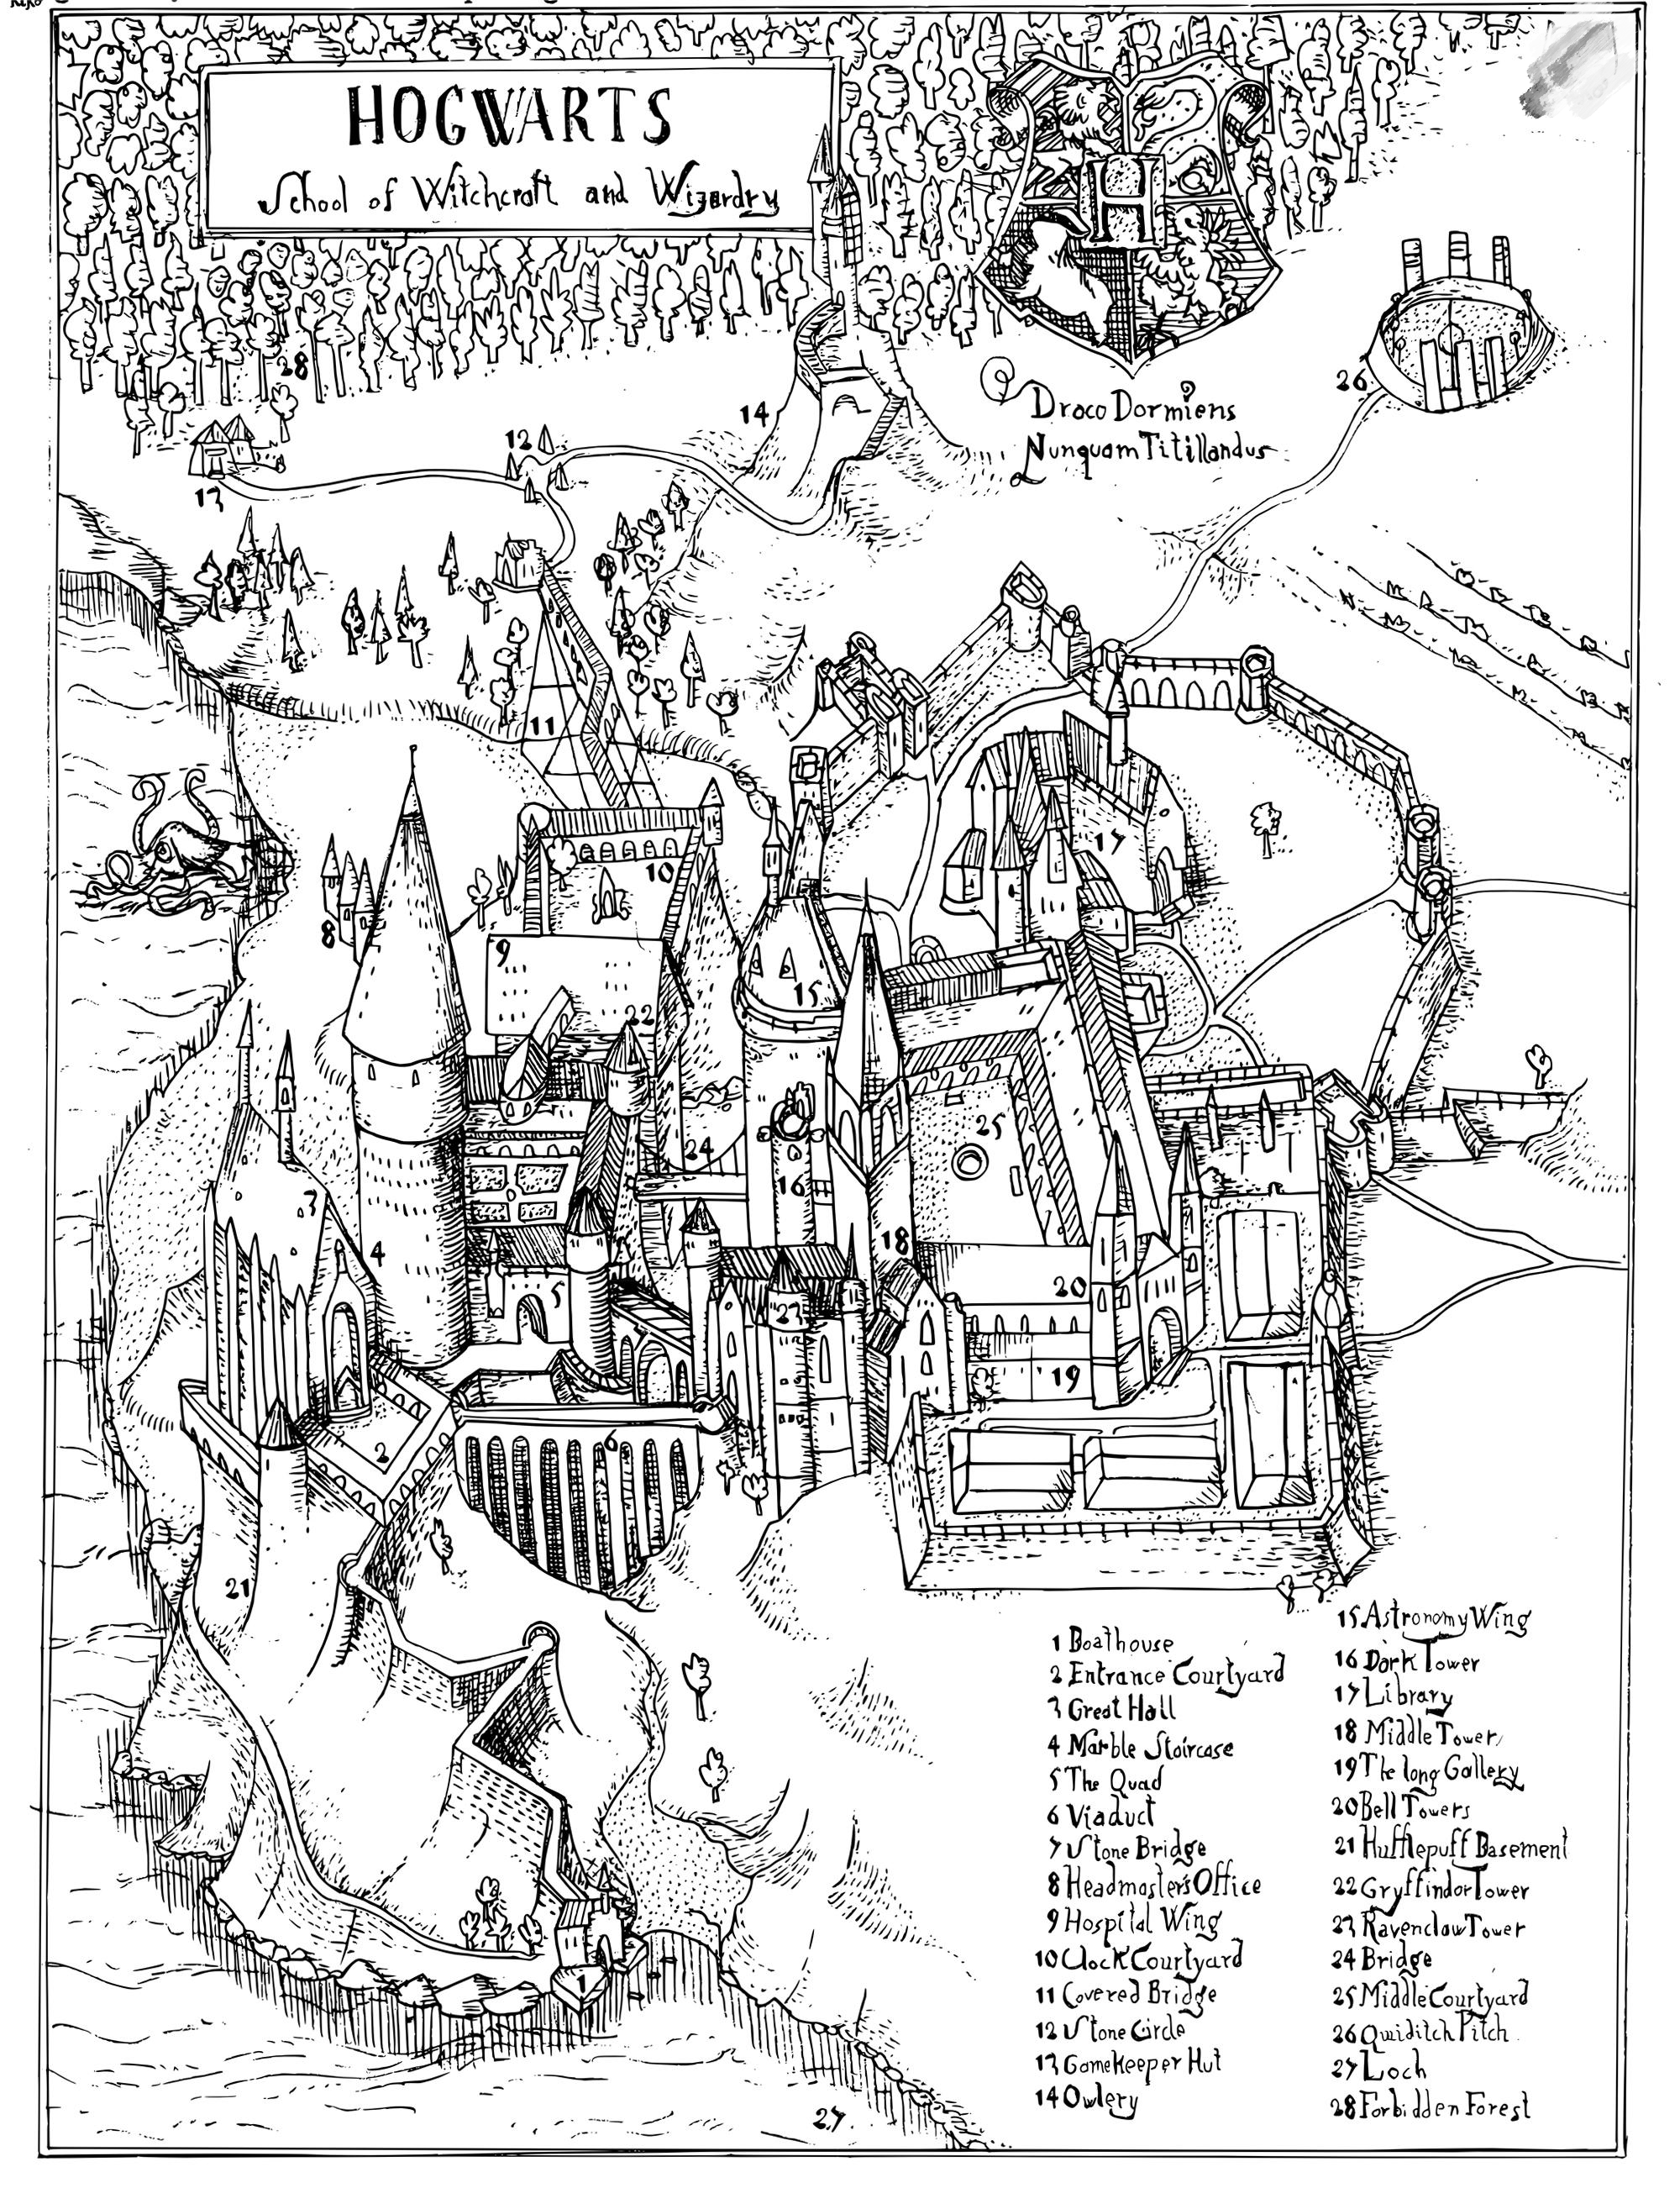 HOGWARTS
School of Witchcraft and Wizardry
H
Draco Dormiens
Nunquam Titillandus
28
26
14
12
13
11
10
17
8
9
15
22
25
24
16
3
4
18
5
20
23
7
19
6
2
21
1
27
1 Boathouse
2 Entrance Courtyard
3 Great Hall
4 Marble Staircase
5 The Quad
6 Viaduct
7 Stone Bridge
8 Headmaster's Office
9 Hospital Wing
10 Clock Courtyard
11 Covered Bridge
12 Stone Circle
13 Gamekeeper Hut
14 Owlery
15 Astronomy Wing
16 Dark Tower
17 Library
18 Middle Tower
19 The long Gallery
20 Bell Towers
21 Hufflepuff Basement
22 Gryffindor Tower
23 Ravenclaw Tower
24 Bridge
25 Middle Courtyard
26 Quiditch Pitch
27 Loch
28 Forbidden Forest